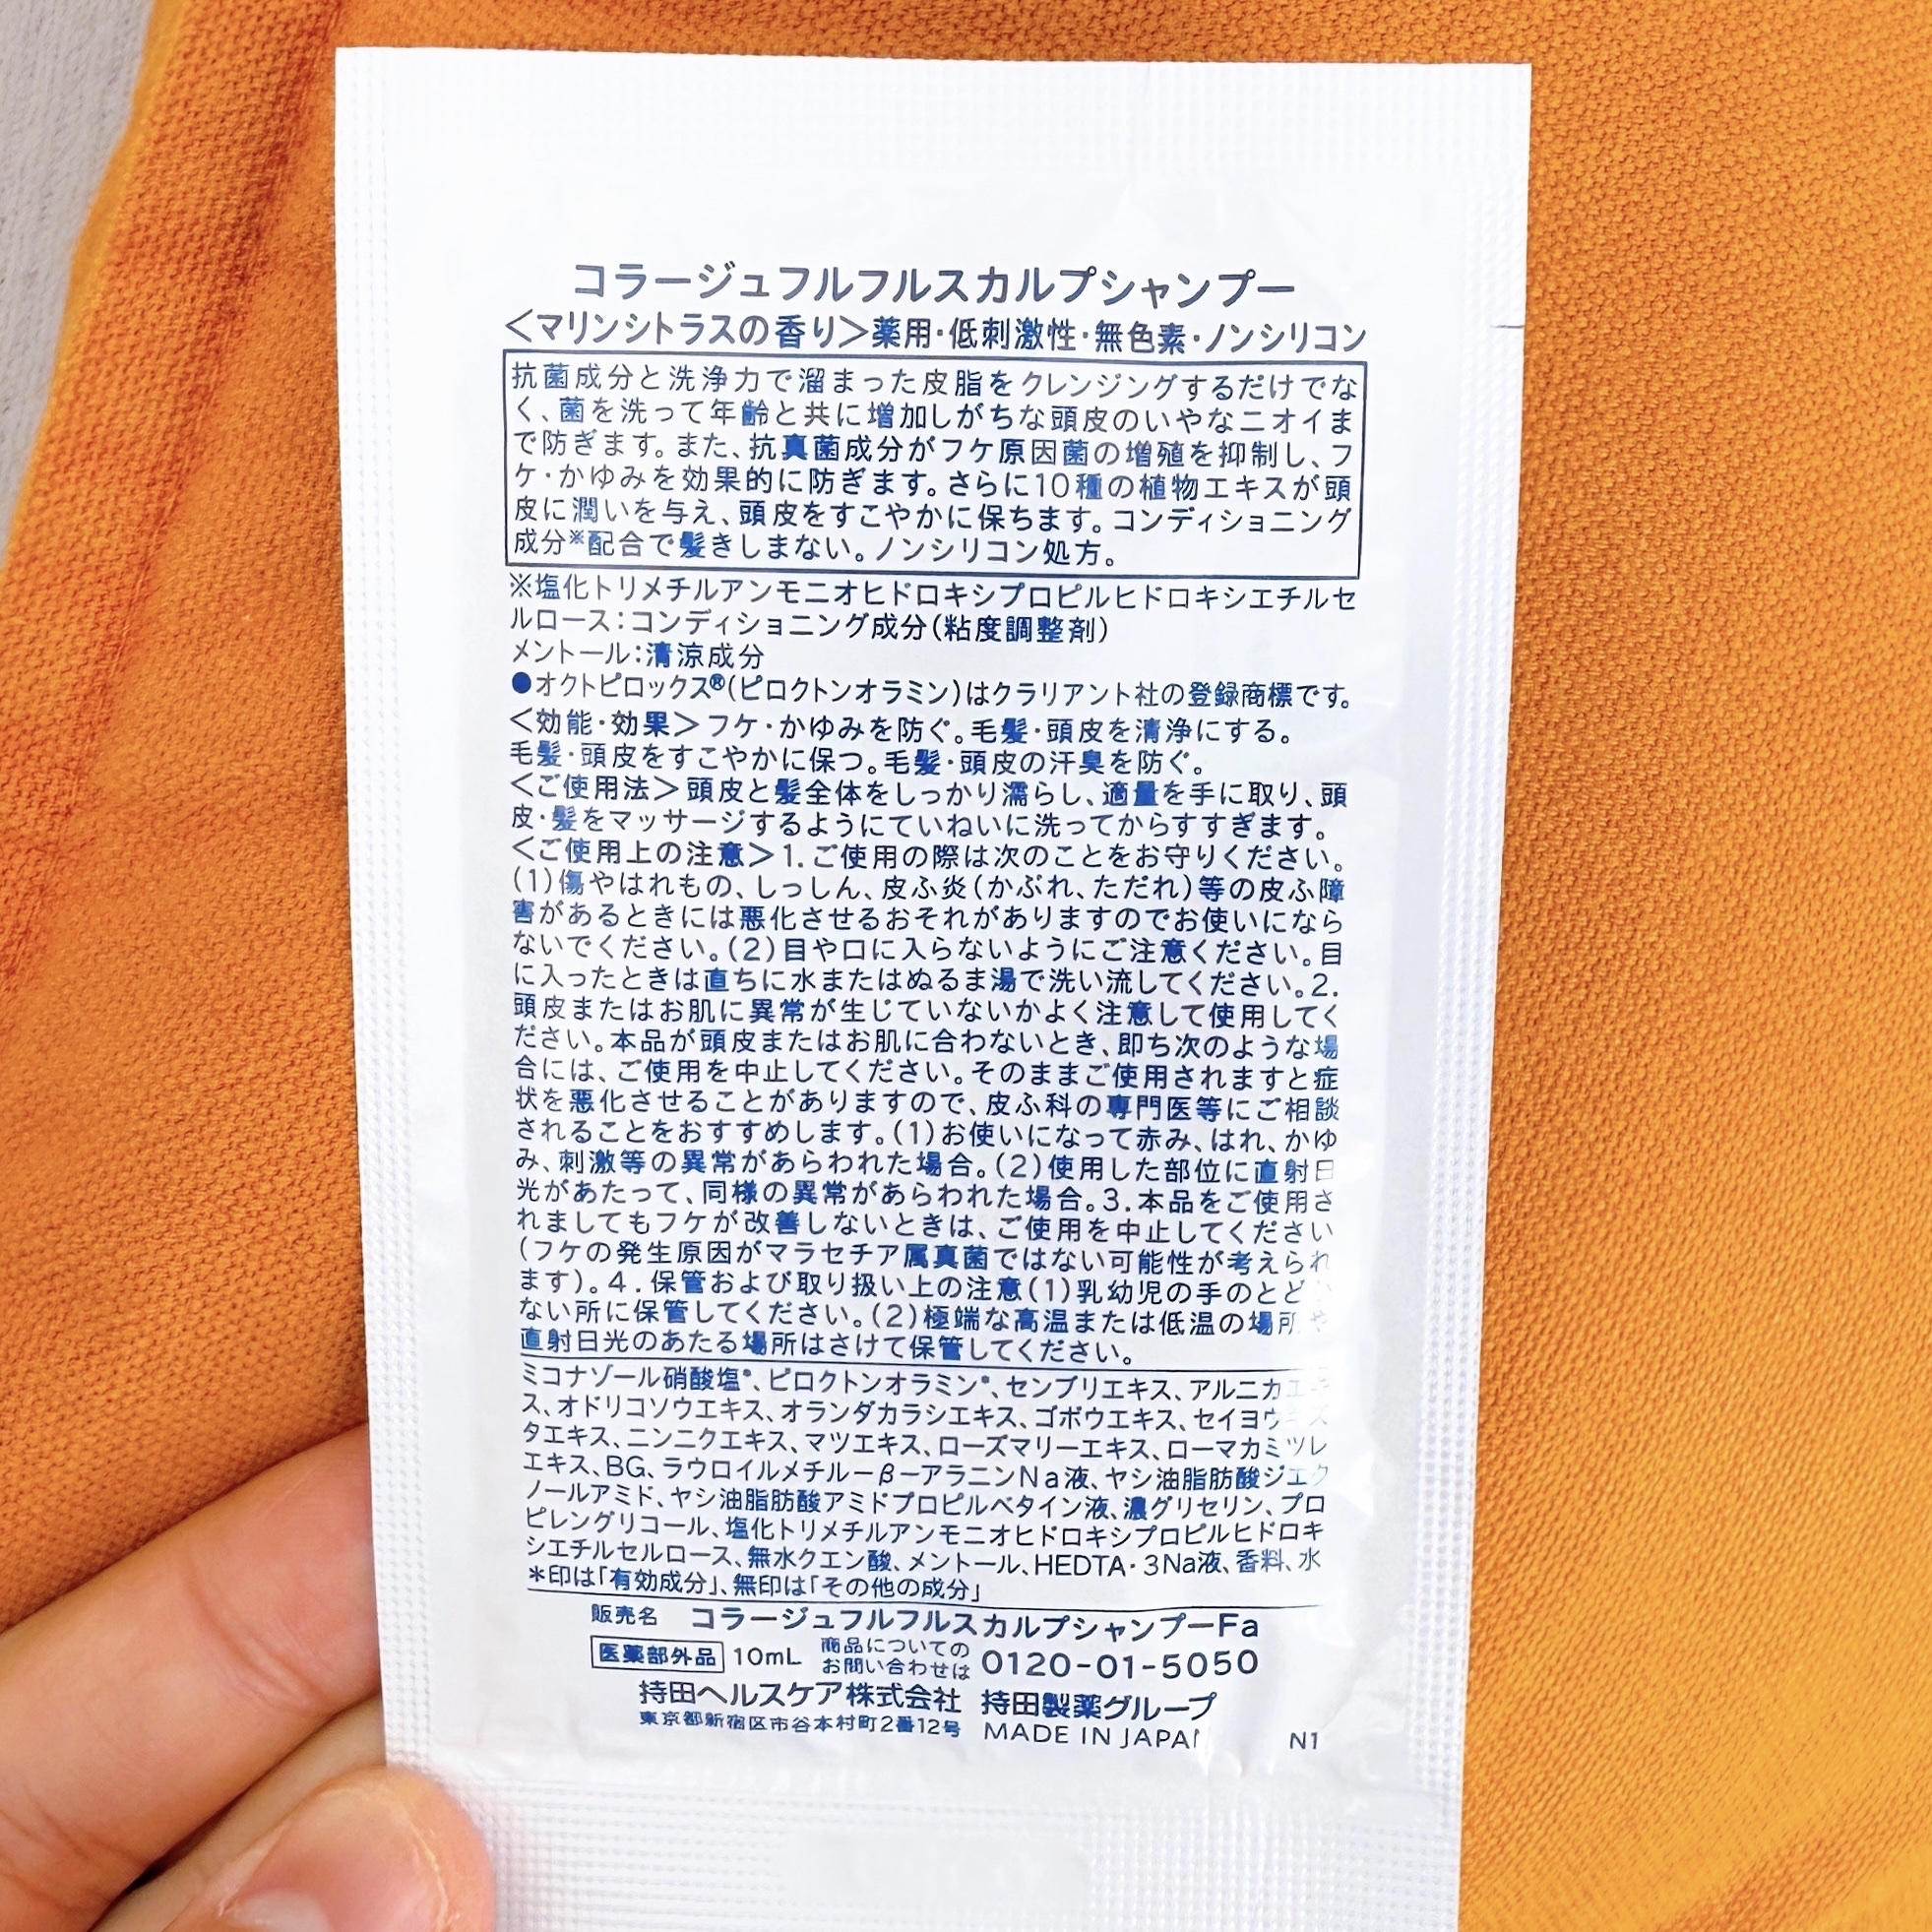 コラージュフルフルスカルプシャンプー
＜マリンシトラスの香り＞薬用・低刺激性・無色素・ノンシリコン
抗菌成分と洗浄力で溜まった皮脂をクレンジングするだけでな
く、菌を洗って年齢と共に増加しがちな頭皮のいやなニオイま
で防ぎます。また、抗真菌成分がフケ原因菌の増殖を抑制し、フ
ケ・かゆみを効果的に防ぎます。さらに10種の植物エキスが頭
皮に潤いを与え、頭皮をすこやかに保ちます。コンディショニング
成分※配合で髪きしまない。ノンシリコン処方。
※塩化トリメチルアンモニオヒドロキシプロピルヒドロキシエチルセ
ルロース：コンディショニング成分（粘度調整剤）
メントール：清涼成分
●オクトピロックス®（ピロクトンオラミン）はクラリアント社の登録商標です。
＜効能・効果＞フケ・かゆみを防ぐ。毛髪・頭皮を清浄にする。
毛髪・頭皮をすこやかに保つ。毛髪・頭皮の汗臭を防ぐ。
＜ご使用法＞頭皮と髪全体をしっかり濡らし、適量を手に取り、頭
皮・髪をマッサージするようにていねいに洗ってからすすぎます。
＜ご使用上の注意＞1.ご使用の際は次のことをお守りください。
（1）傷やはれもの、しっしん、皮ふ炎（かぶれ、ただれ）等の皮ふ障
害があるときには悪化させるおそれがありますのでお使いになら
ないでください。（2）目や口に入らないようにご注意ください。目
に入ったときは直ちに水またはぬるま湯で洗い流してください。2.
頭皮またはお肌に異常が生じていないかよく注意して使用してく
ださい。本品が頭皮またはお肌に合わないとき、即ち次のような場
合には、ご使用を中止してください。そのままご使用されますと症
状を悪化させることがありますので、皮ふ科の専門医等にご相談
されることをおすすめします。（1）お使いになって赤み、はれ、かゆ
み、刺激等の異常があらわれた場合。（2）使用した部位に直射日
光があたって、同様の異常があらわれた場合。3.本品をご使用さ
れましてもフケが改善しないときは、ご使用を中止してください
（フケの発生原因がマラセチア属真菌ではない可能性が考えられ
ます）。4.保管および取り扱い上の注意（1）乳幼児の手のとど
ない所に保管してください。（2）極端な高温または低温の場所や
直射日光のあたる場所はさけて保管してください。
ミコナゾール硝酸塩*、ピロクトンオラミン*、センブリエキス、アルニカエキ
ス、オドリコソウエキス、オランダカラシエキス、ゴボウエキス、セイヨウキズ
タエキス、ニンニクエキス、マツエキス、ローズマリーエキス、ローマカミツレ
エキス、BG、ラウロイルメチル－β－アラニンNa液、ヤシ油脂肪酸ジエタ
ノールアミド、ヤシ油脂肪酸アミドプロピルベタイン液、濃グリセリン、プロ
ピレングリコール、塩化トリメチルアンモニオヒドロキシプロピルヒドロキ
シエチルセルロース、無水クエン酸、メントール、HEDTA・3Na液、香料、水
＊印は「有効成分」、無印は「その他の成分」
販売名 コラージュフルフルスカルプシャンプーFa
医薬部外品 10mL 商品についての
お問い合わせは 0120-01-5050
持田ヘルスケア株式会社 持田製薬グループ
東京都新宿区市谷本村町2番12号 MADE IN JAPAN N1